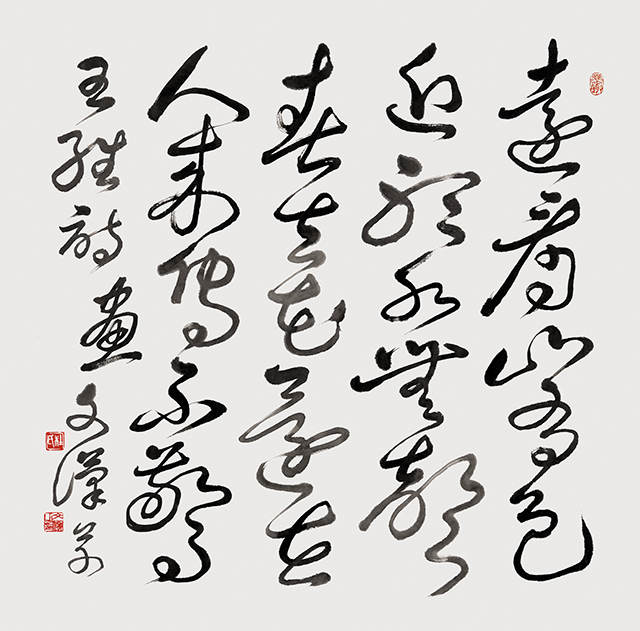 遠看山有色
近聽水無聲
春去花還在
人来鳥不驚
王維詩畫 文漢